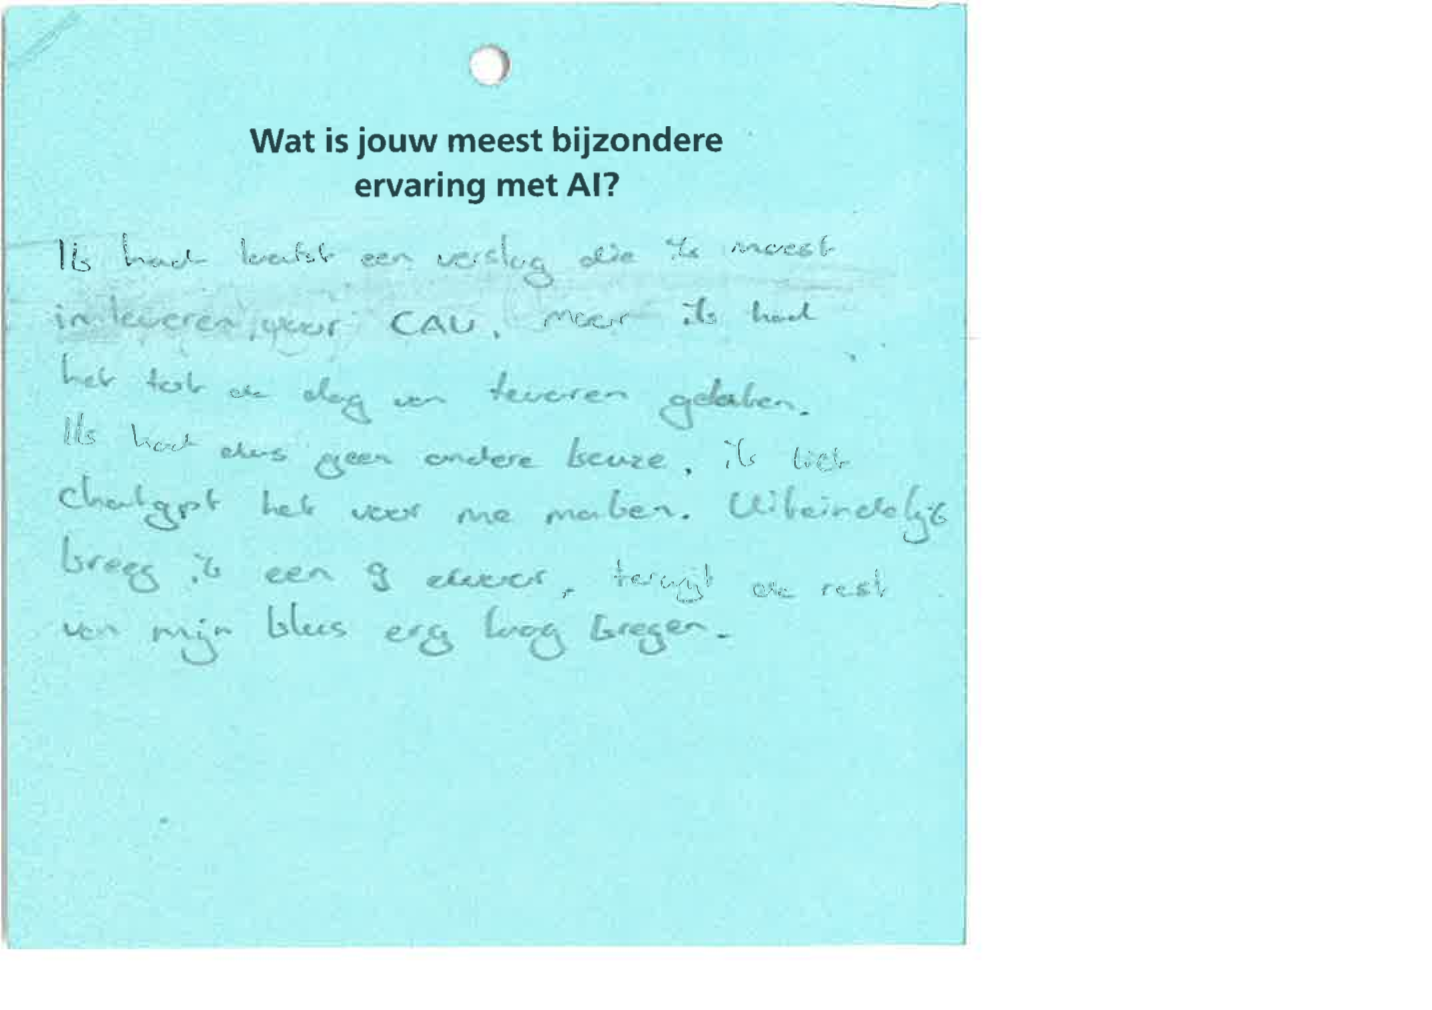 Wat is jouw meest bijzondere
ervaring met AI?
Ik had laatst een verslag die ik moest
inleveren voor CAU, maar ik had
het tot de dag van leveren gelaten.
Ik had dus geen andere keuze, ik liet
chatgpt het voor me maken. Uiteindelijk
kreeg ik een 9 ervoor, terwijl de rest
van mijn klas erg laag kregen.